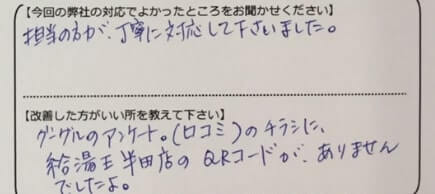 【今回の弊社の対応でよかったところをお聞かせください】
担当の方が、丁寧に対応して下さいました。
【改善した方がいい所を教えて下さい】
グーグルのアンケート。(口コミ)のチラシに、
給湯王半田店のQRコードが、ありません
でしたよ。